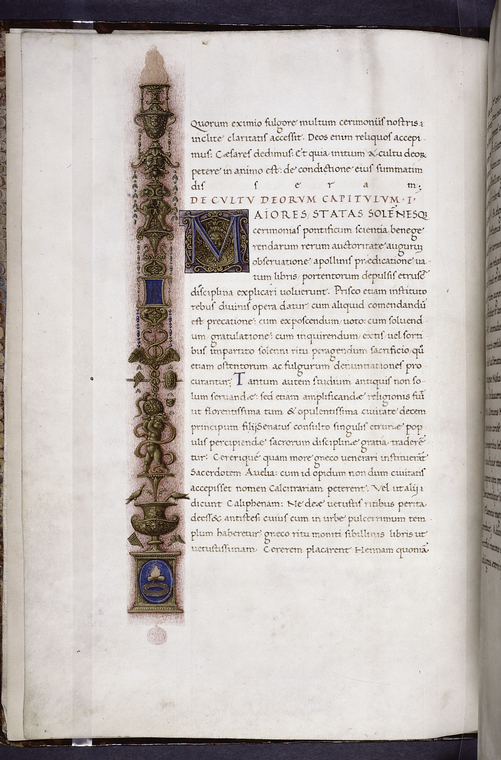 Quorum eximio fulgore multum cerimoniis nostris:
inclite claritatis accessit. Deos enim reliquos accepi
mus: Cæsares dedimus: Et quia initium a cultu deoꝝ
petere in animo est: de condictione eius summatim
disseram.
DE CVLTV DEORVM CAPITVLVM · I ·
MAIORES, STATAS SOLĒNESQꝫ
cerimonias pontificum scientia, benege
rendarum rerum auctoritate auguru
observatione, apollinis prædicatione va
tum libris, portentorum depulsis etrusc̄
disciplina explicari voluerunt. Prisco etiam instituto
rebus divinis opera datur: cum aliquid comendandū
est: precatione: cum exposcendum: voto: cum soluend
um gratulatione: cum inquirendum: extis vel sorti
bus impartito: solenni ritu peragendum sacrificio: quo
etiam ostentorum ac fulgurum denuntiationes pro
curantur. Tantum autem studium antiquis non so-
lum servandæ: sed etiam amplificandæ religionis fuit
ut florentissima tum & opulentissima civitate: decem
principum filij Senatus consulto singulis etruriæ pop
ulis percipiendæ sacrorum disciplinæ gratia traderē
tur: Cererique quam more greco venerari instituerāt
Sacerdotem Avelia: cum id opidum non dum civitatis
accepisset nomen Calcitrariam peterent: Vel ut alii
dicunt Caliphenam: Ne deæ vetustis ritibus perita
deesset antistes: cuius cum in urbe pulcerrimum tem
plum haberetur gneco ritu moniti sibillinis libris ut
vetustissimam Cererem placarent Hennam quoniā